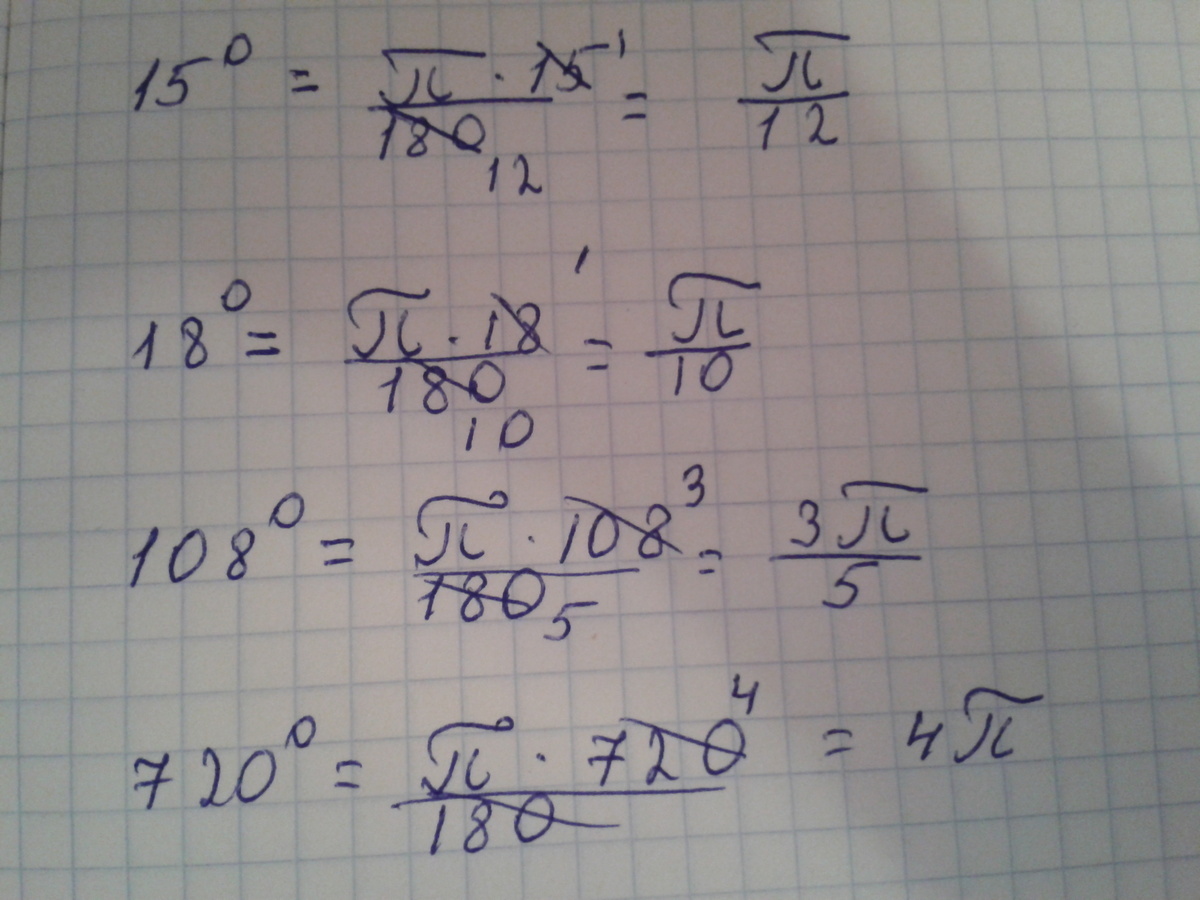 15° = π · 15 1 / 180 12 = π / 12
18° = π · 18 1 / 180 10 = π / 10
108° = π · 108 3 / 180 5 = 3π / 5
720° = π · 720 4 / 180 = 4π